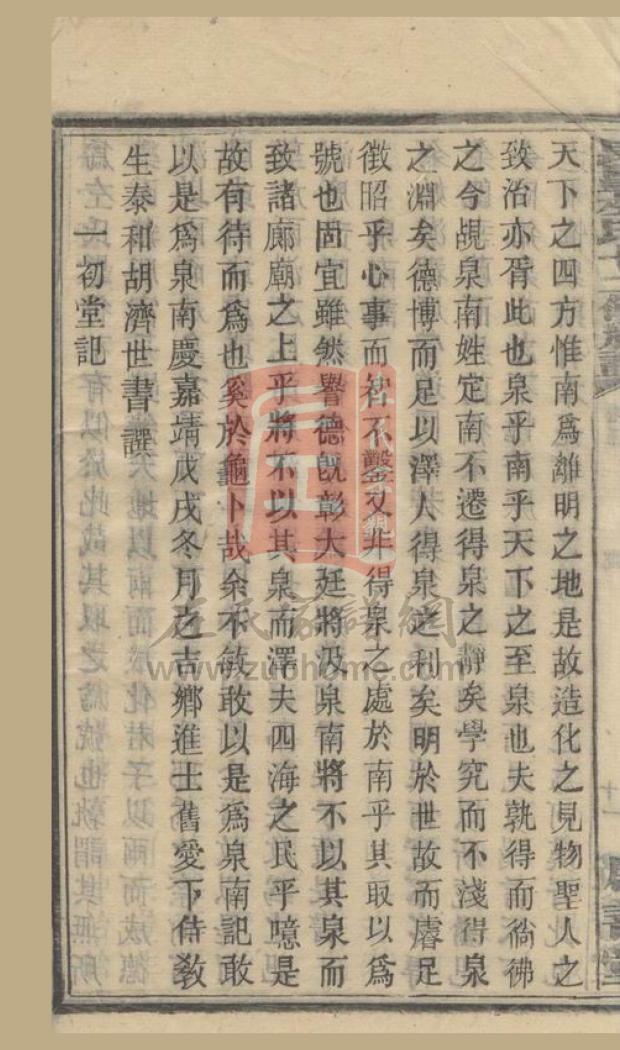 天下之四方惟南爲離明之地是故造化之見物聖人之
致治亦胥此也泉乎南乎天下之至泉也夫孰得而徜彿
之今覘泉南姓定南不遷得泉之靜矣學究而不淺得泉
之淵矣德博而足以澤人得泉之利矣明於世故而睿足
徴昭乎心事而智不鑿又非得泉之處於南乎其取以爲
號也固宜雖然譽德既彰大廷將汲泉南將不以其泉而
致諸廊廟之上乎將不以其泉而澤夫四海之民乎噫是
故有待而爲也奚於龜卜哉余不敏敢以是爲泉南記敢
以是爲泉南慶嘉靖戊戌冬月之吉鄉進士舊愛下侍教
生泰和胡濟世書譔
一初堂記
左氏家譜網
www.zuohome.com